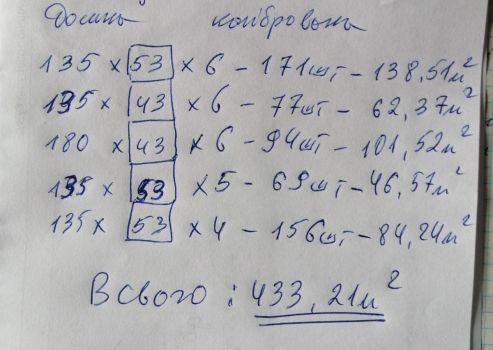 Дошка калібрована
135 × 53 × 6 – 171шт – 138,51м²
135 × 43 × 6 – 77шт – 62,37м²
180 × 43 × 6 – 94шт – 101,52м²
135 × 53 × 5 – 69шт – 46,57м²
135 × 53 × 4 – 156шт – 84,24м²
Всвого : 433,21м²